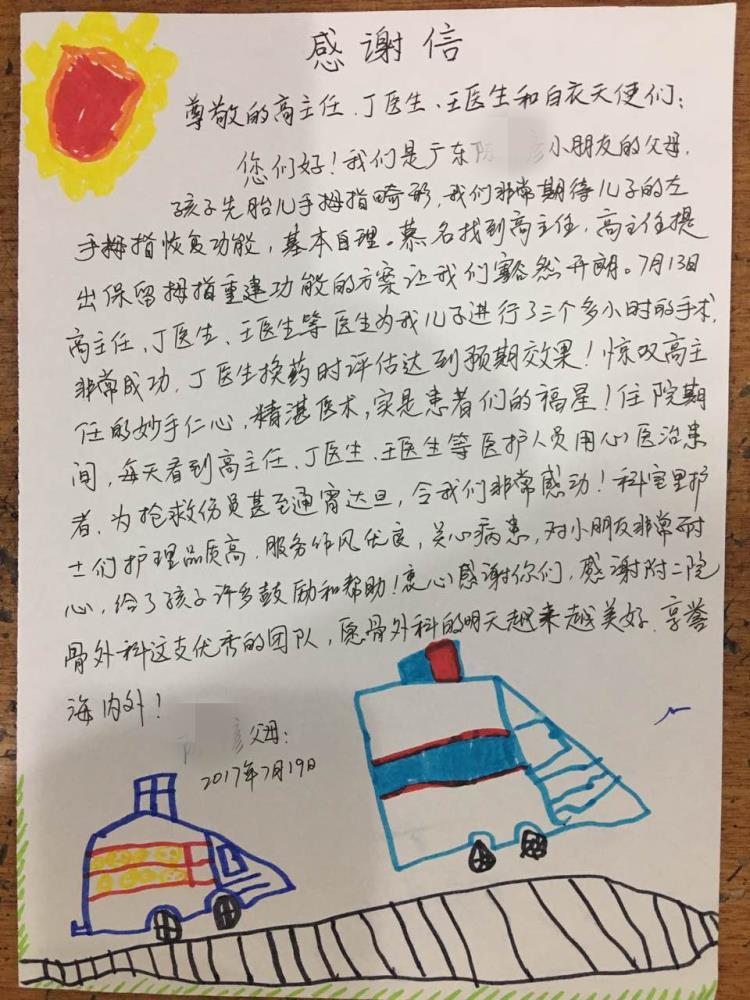 感谢信
尊敬的高主任、丁医生、王医生和白衣天使们：
您们好！我们是广东陈 彦小朋友的父母，
孩子先胎儿手拇指畸形，我们非常期待儿子的左
手拇指恢复功能，基本自理。慕名找到高主任，高主任提
出保留拇指重建功能的方案让我们豁然开朗。7月13日
高主任、丁医生、王医生等医生为我儿子进行了三个多小时的手术，
非常成功，丁医生换药时评估达到预期效果！惊叹高主
任的妙手仁心，精湛医术，实是患者们的福星！住院期
间，每天看到高主任、丁医生、王医生等医护人员用心医治患
者，为抢救伤员甚至通宵达旦，令我们非常感动！科室里护
士们护理品质高，服务作风优良，关心病患，对小朋友非常耐
心，给了孩子许多鼓励和帮助！衷心感谢你们，感谢附二院
骨外科这支优秀的团队，愿骨外科的明天越来越美好、享誉
海内外！
彦父母：
2017年7月19日